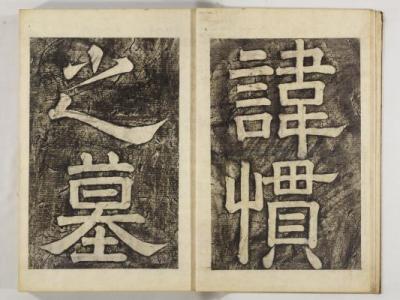 諱慣
之墓